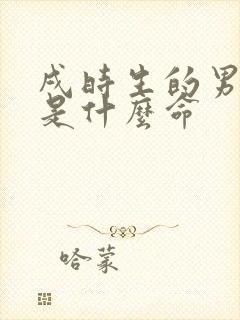 戌时生的男
是什麼命
哈蒙